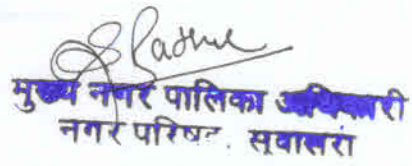 मुख्य नगर पालिका अधिकारी
नगर परिषद